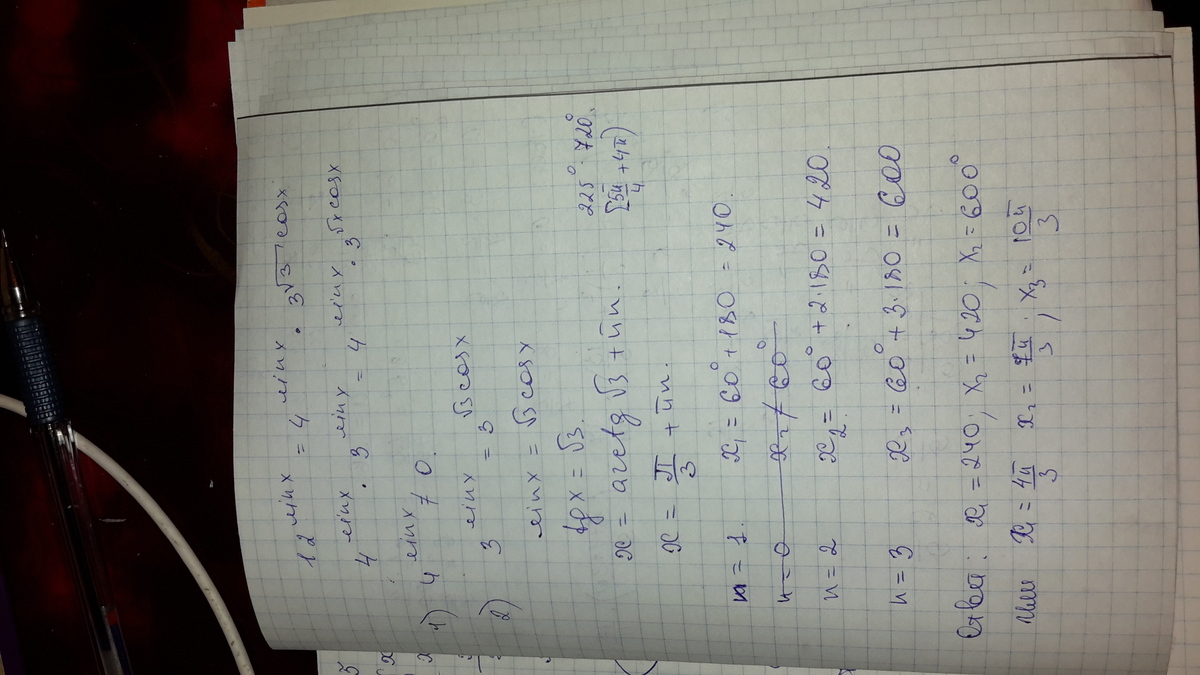 12^sinx = 4^sinx · 3^√3 cosx
4^sinx · 3^sinx = 4^sinx · 3^√x cosx
1) 4^sinx ≠ 0.
2) 3^sinx = 3^√3 cosx
sinx = √3 cosx
tgx = √3.
x = arctg √3 + πn.
225° · 720°.
x = π/3 + πn.
[5π/4 + 4π)
n = 1. x₁ = 60° + 180 = 240.
n = 0 x = 60°
n = 2 x₂ = 60° + 2·180 = 420.
n = 3 x₃ = 60° + 3·180 = 600
Ответ: x₁ = 240; x₂ = 420; x₂ = 600°
Или x₁ = 4π/3 x₂ = 7π/3; x₃ = 10π/3